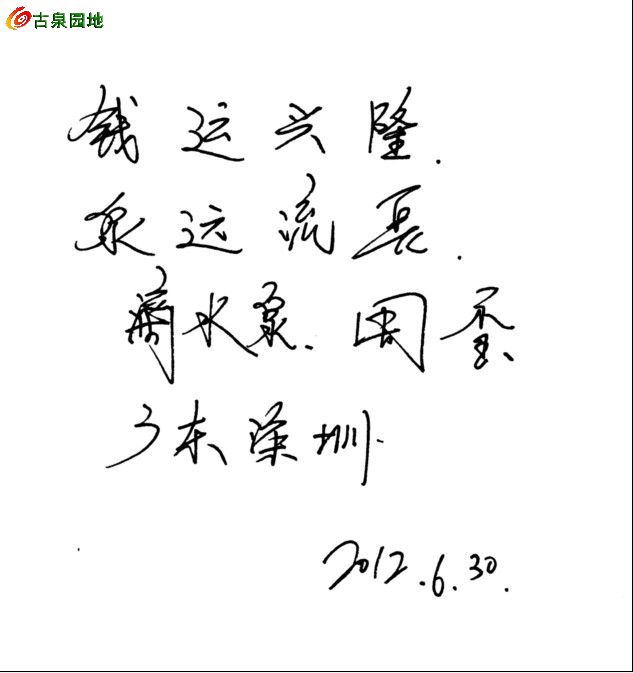 古泉园地
钱运兴隆.
泉远流长.
滴水泉、周
广东深圳.
2012.6.30.